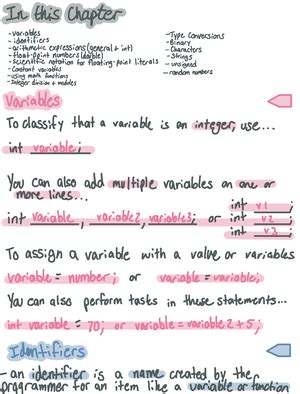 In this Chapter
- variables
- identifiers
- arithmetic expressions (general + int)
- float-point numbers (double)
- Scientific notation for floating-point literals
- Constant variables
- using math functions
- Integer division + modulus
- Type Conversions
- Binary
- Characters
- Strings
- unsigned
- random numbers
Variables
To classify that a variable is an integer, use...
int variable;
You can also add multiple variables on one or
more lines...
int variable, variable2, variable3; or
int v1;
int v2;
int v3;
To assign a variable with a value or variables
variable = number; or variable = variable;
You can also perform tasks in these statements...
int variable = 70; or variable = variable2 + 5;
Identifiers
- an identifier is a name created by the
programmer for an item like a variable or function